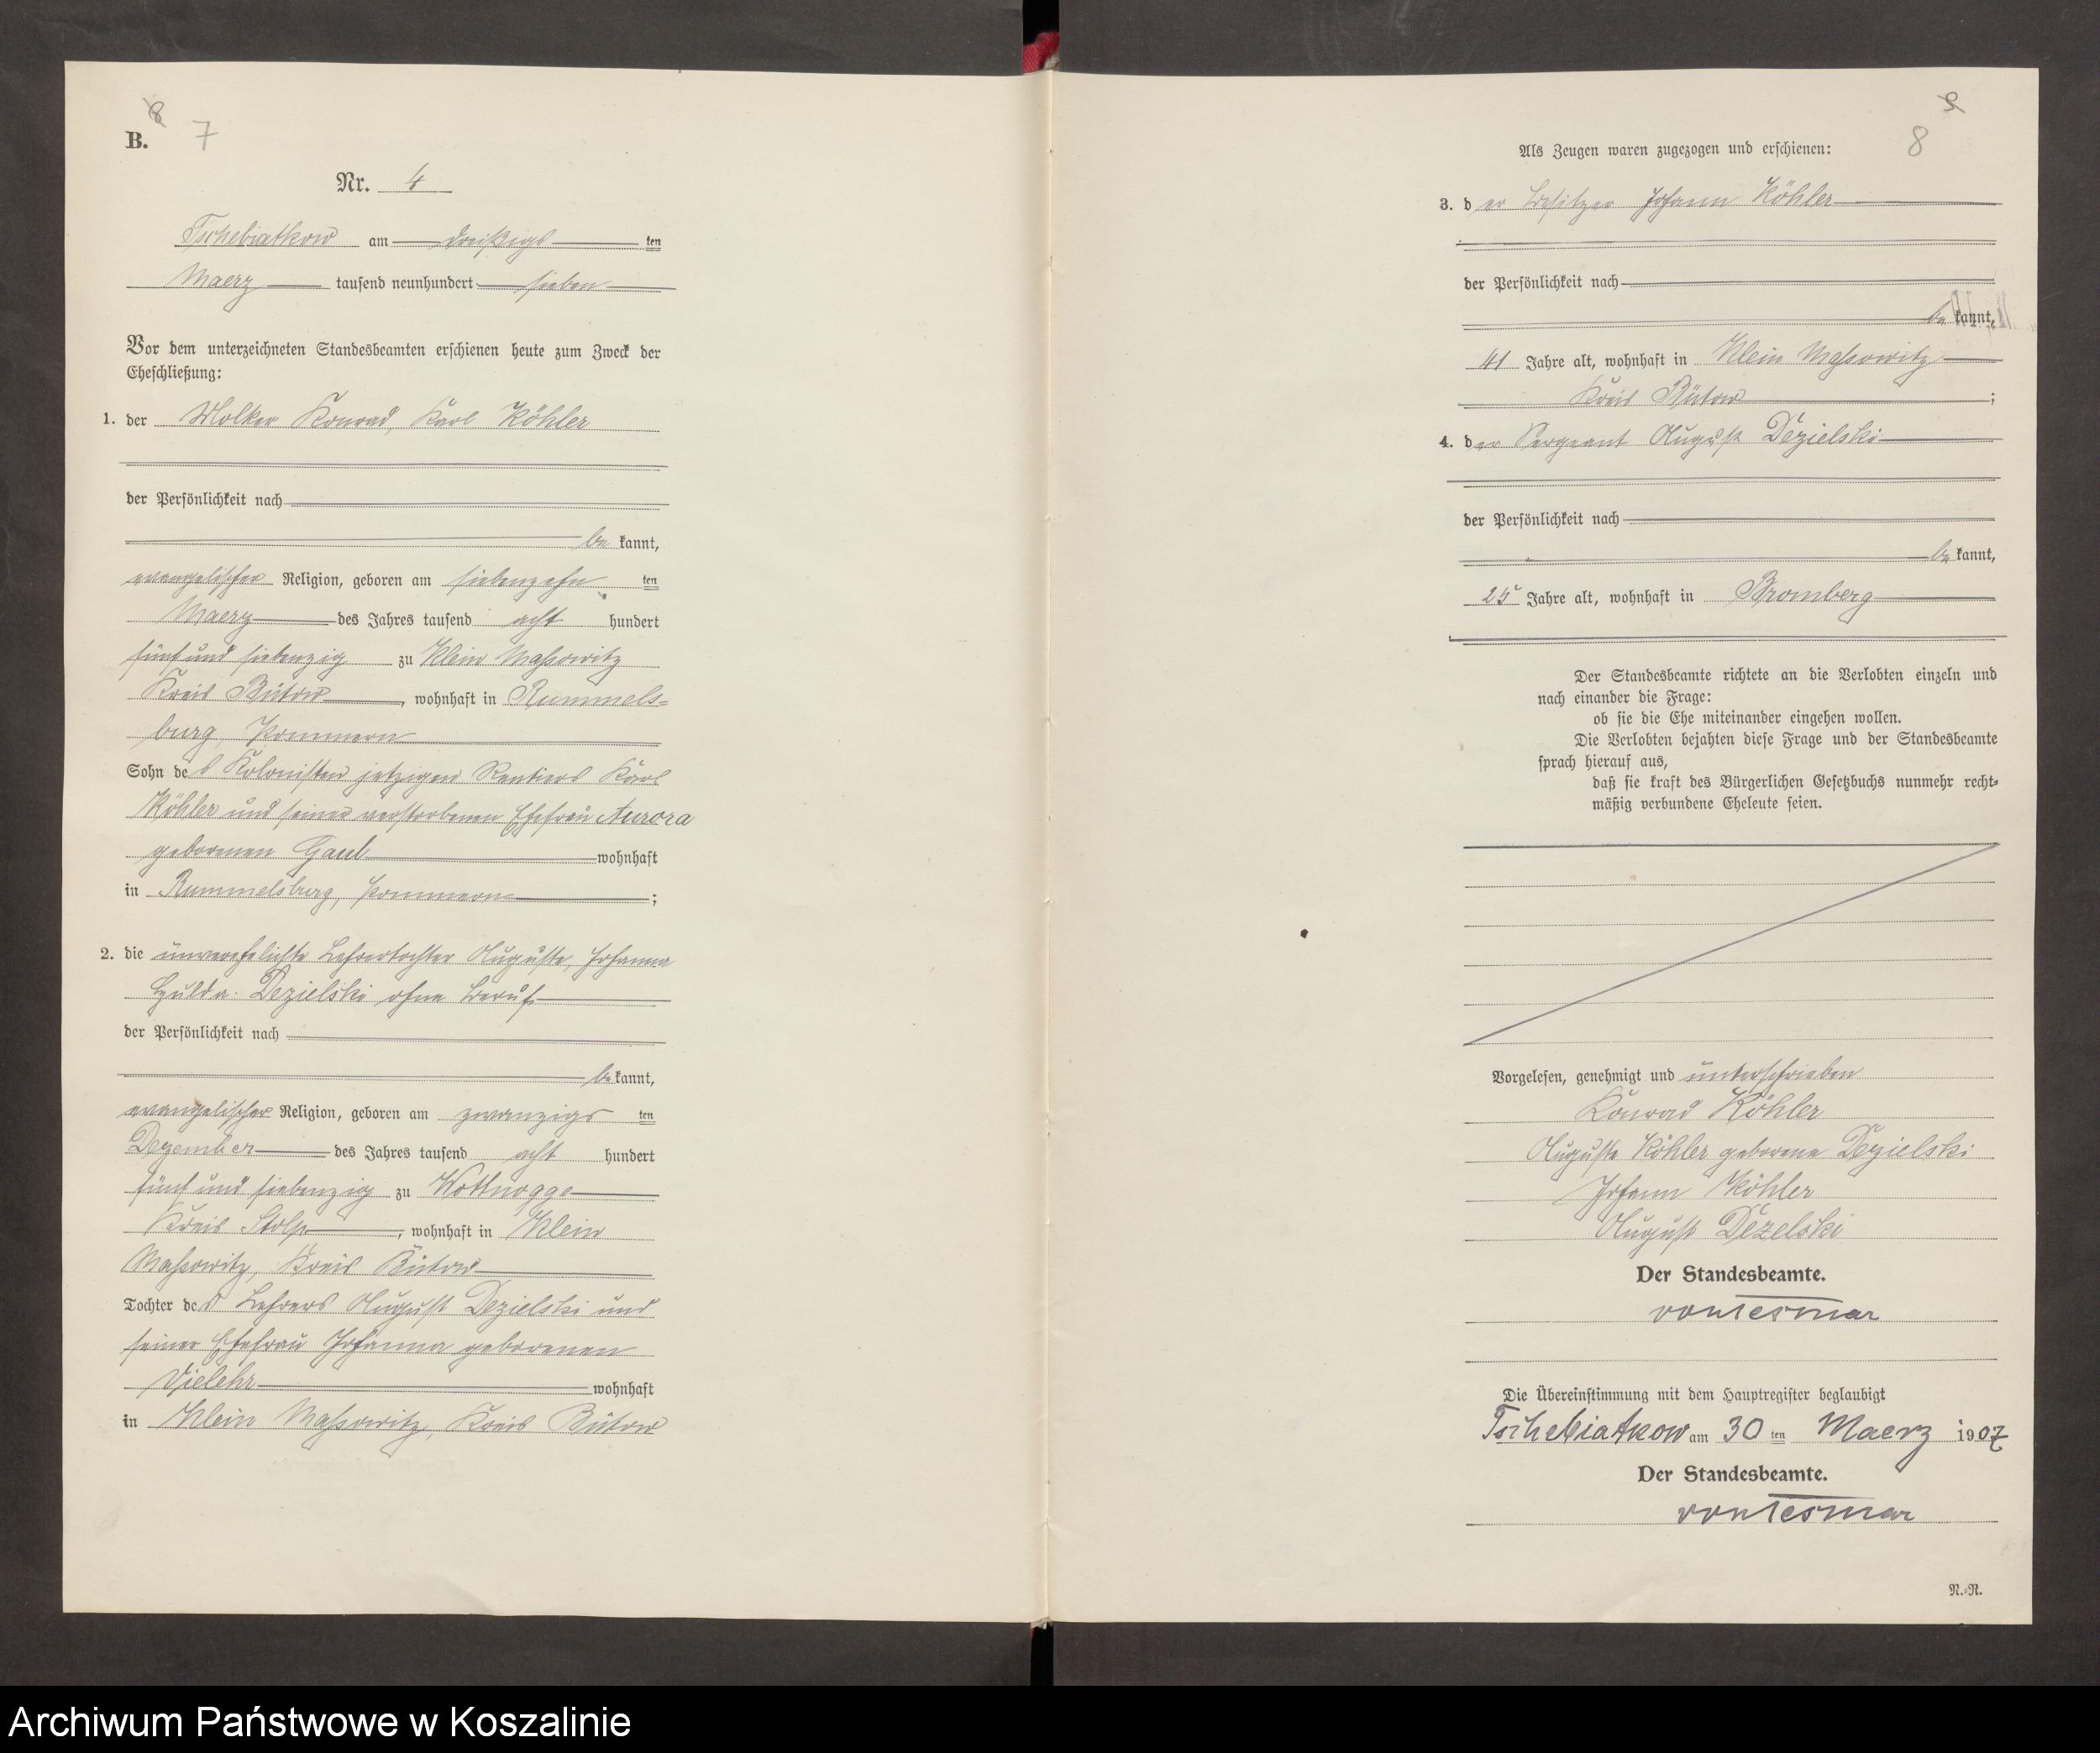 8
B. 7
Nr. 4
Tschebiatkow am dreißigs ten
Maerz tausend neunhundert sieben
Vor dem unterzeichneten Standesbeamten erschienen heute zum Zweck der
Eheschließung:
1. der Molker Konrad, Karl Köhler
der Persönlichkeit nach
be kannt,
evangelischer Religion, geboren am siebenzehn ten
Maerz des Jahres tausend acht hundert
fünf und siebenzig zu Klein Massowitz
Kreis Bütow, wohnhaft in Rummels=
burg, Pommern
Sohn des Kolonisten jetzigen Rentiers Karl
Köhler und seiner verstorbenen Ehefrau Aurora
geborenen Gaul wohnhaft
in Rummelsburg, Pommern;
2. die unverehelichte Lehrertochter Auguste, Johanna
Hulda Dezielski ohne Beruf
der Persönlichkeit nach
be kannt,
evangelischer Religion, geboren am zwanzigs ten
Dezember des Jahres tausend acht hundert
fünf und siebenzig zu Wottnogge
Kreis Stolp, wohnhaft in Klein
Massowitz, Kreis Bütow
Tochter des Lehrers August Dezielski und
seiner Ehefrau Johanna geborenen
Vielehr wohnhaft
in Klein Massowitz, Kreis Bütow
9
8
Als Zeugen waren zugezogen und erschienen:
3. der Besitzer Johann Köhler
der Persönlichkeit nach
be kannt,
41 Jahre alt, wohnhaft in Klein Massowitz
Kreis Bütow;
4. der Sergeant August Dezielski
der Persönlichkeit nach
be kannt,
25 Jahre alt, wohnhaft in Bromberg
Der Standesbeamte richtete an die Verlobten einzeln und
nach einander die Frage:
ob sie die Ehe miteinander eingehen wollen.
Die Verlobten bejahten diese Frage und der Standesbeamte
sprach hierauf aus,
daß sie kraft des Bürgerlichen Gesetzbuchs nunmehr recht=
mäßig verbundene Eheleute seien.
Vorgelesen, genehmigt und unterschrieben
Konrad Köhler
Auguste Köhler geborene Dezielski
Johann Köhler
August Dezelski
Der Standesbeamte.
von Tesmar
Die Übereinstimmung mit dem Hauptregister beglaubigt
Tschebiatkow am 30 ten Maerz 1907
Der Standesbeamte.
von Tesmar
N.=N.
Archiwum Państwowe w Koszalinie